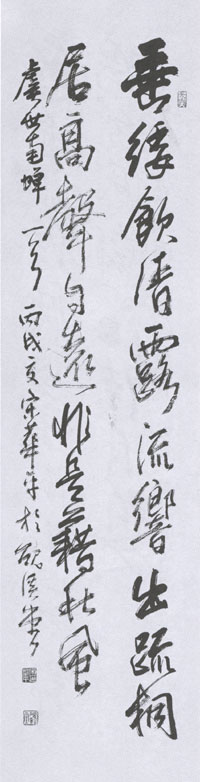 垂緌飲清露流響出疏桐
居高聲自遠非是藉秋風
虞世南蟬一首 丙戌夏宋華平於